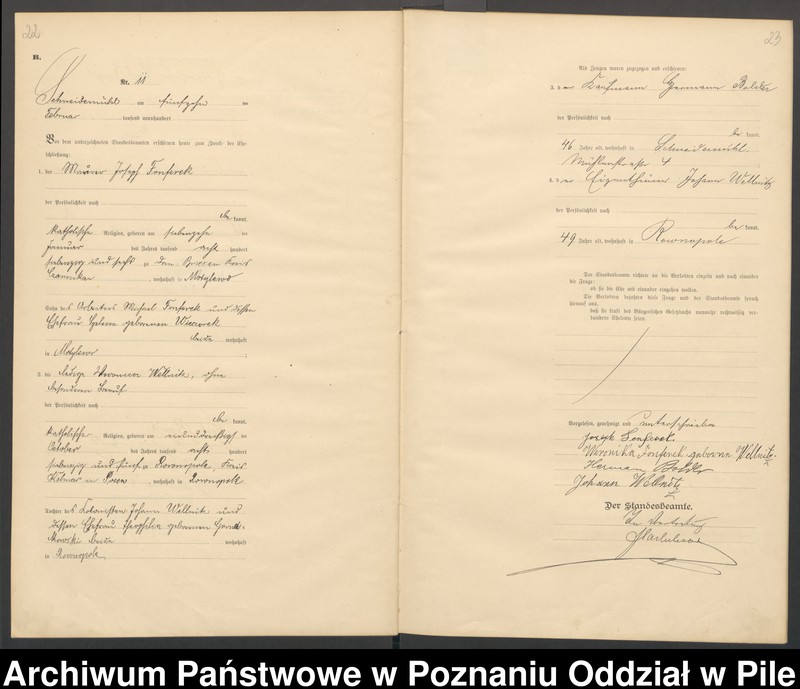 22
B.
Nr. 11
Schneidemühl am fünfzehn ten
Februar tausend neunhundert
Vor dem unterzeichneten Standesbeamten erschienen heute zum Zweck der Ehe-
schließung:
1. der Maurer Joseph Fonferek
der Persönlichkeit nach
be kannt,
katholischer Religion, geboren am siebenzehn ten
Januar des Jahres tausend acht hundert
siebenzig und sechs zu Dom. Kreis
Czarnikau, wohnhaft in Motylewo
Sohn des Arbeiters Michael Fonferek und dessen
Ehefrau Helena geborenen Wieczorek
beide wohnhaft
in Motylewo
2. die ledige Veronica Wellnitz, ohne
besonderen Beruf
der Persönlichkeit nach
be kannt,
katholischer Religion, geboren am einunddreißigsten
October des Jahres tausend acht hundert
siebenzig und fünf zu Rownopole, Kreis
Kolmar in Posen, wohnhaft in Rownopole
Tochter des Kolonisten Johann Wellnitz und
dessen Ehefrau geborenen
beide wohnhaft
in Rownopole
23
Als Zeugen waren zugezogen und erschienen:
3. der Kaufmann Hermann
der Persönlichkeit nach
be kannt,
46 Jahre alt, wohnhaft in Schneidemühl
Mühlenstraße 4
4. der Eigenthümer Johann Wellnitz
der Persönlichkeit nach
be kannt,
49 Jahre alt, wohnhaft in Rownopole
Der Standesbeamte richtete an die Verlobten einzeln und nach einander
die Frage:
ob sie die Ehe mit einander eingehen wollen.
Die Verlobten bejahten diese Frage und der Standesbeamte sprach
hierauf aus,
daß sie kraft des Bürgerlichen Gesetzbuchs nunmehr rechtmäßig ver-
bundene Eheleute seien.
Vorgelesen, genehmigt und unterschrieben
Joseph Fonferek
Weronika Fonferek geborene Wellnitz
Hermann
Johann Wellnitz
Der Standesbeamte.
In Vertretung
Archiwum Państwowe w Poznaniu Oddział w Pile